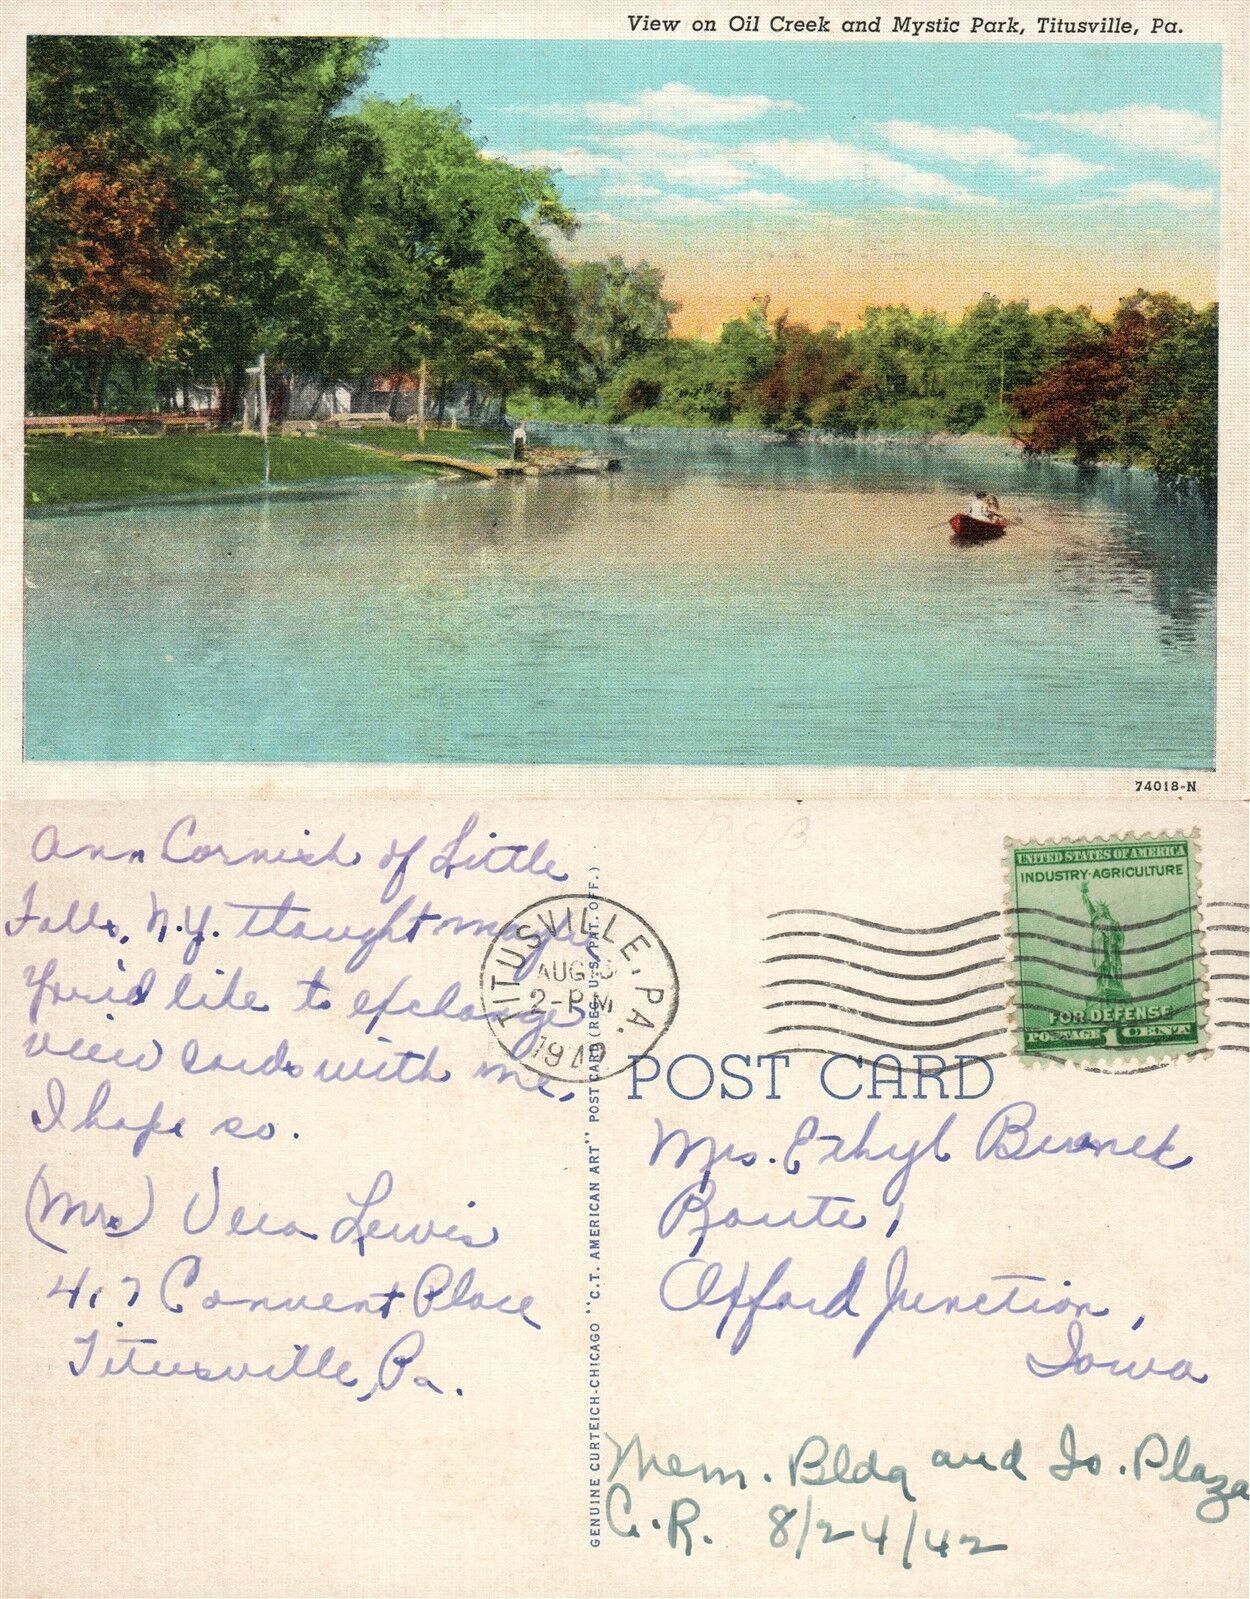 View on Oil Creek and Mystic Park, Titusville, Pa.
74018-N
Ann Cornish of Little
Falls, N.Y. thought maybe
you'd like to exchange
view cards with me,
I hope so.
(Mrs) Vera Lewis
417 Convent Place
Titusville, Pa.
GENUINE CURTEICH-CHICAGO "C.T. AMERICAN ART" POST CARD (REG. U.S. PAT. OFF.)
TITUSVILLE, PA.
AUG
2-PM
UNITED STATES OF AMERICA
INDUSTRY·AGRICULTURE
FOR DEFENSE
POSTAGE 1 CENT
POST CARD
Mrs. Ethyl
Route 1
Oxford Junction,
Iowa
Mem. Bldg and Is. Plaza
C.R. 8/24/42